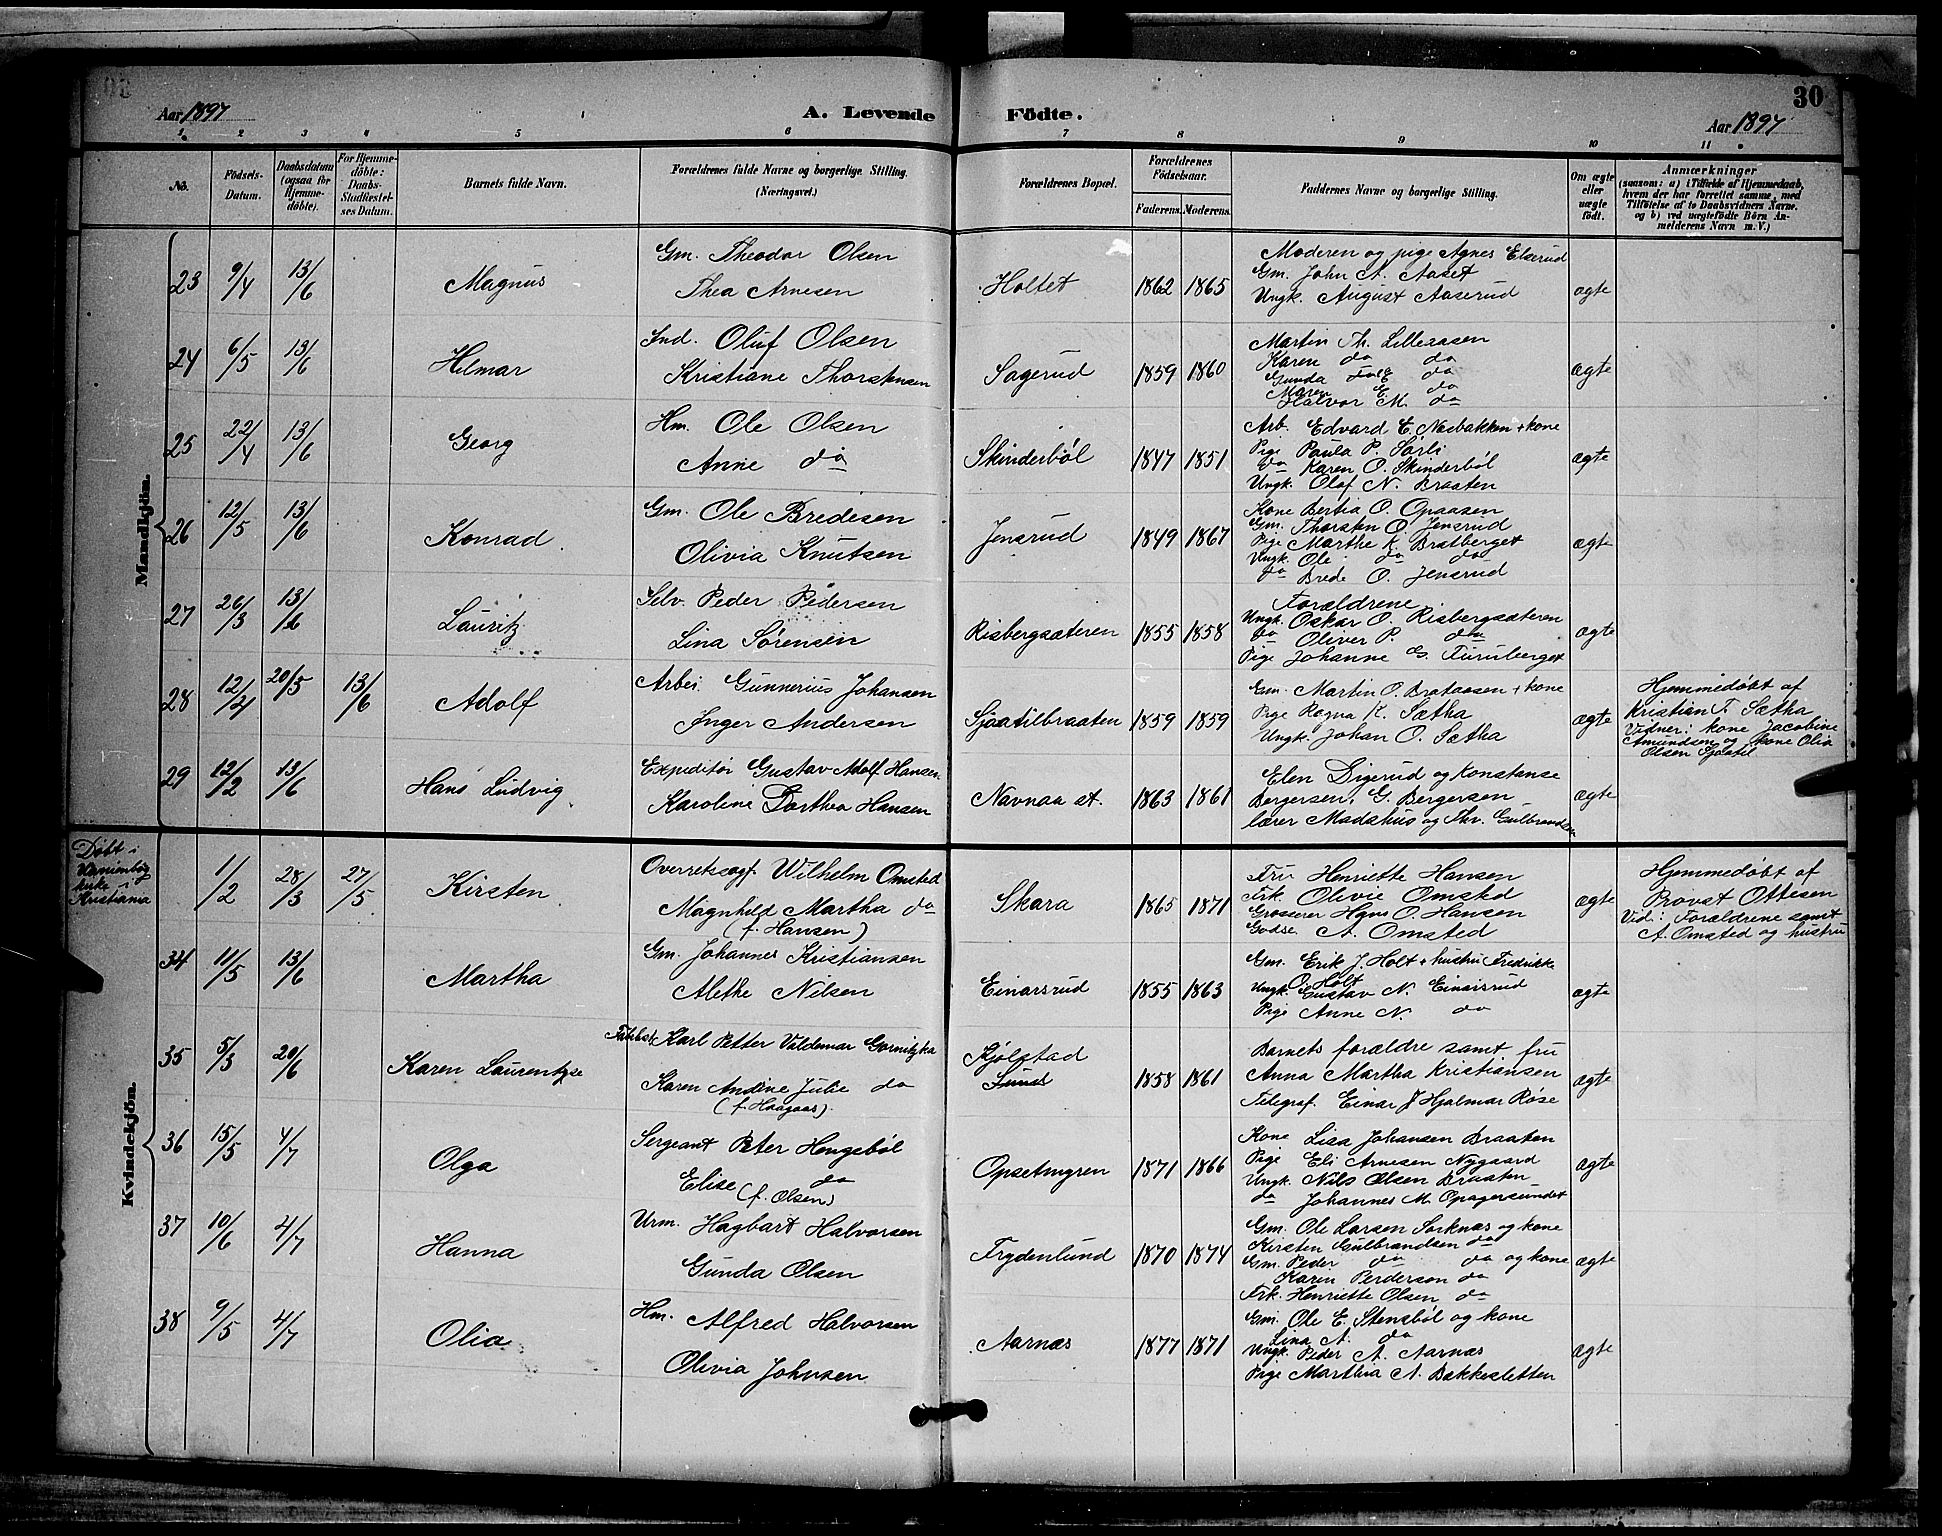 30
Aar 1897 A. Levende Födte. Aar 1897
1 2 3 4 5 6 7 8 9 10 11
No. Födsels-Datum. Daabsdatum (ogsaa for Hjemme-döbte). For Hjemme-döbte: Daabs-Stadfæstel-ses Datum. Barnets fulde Navn. Forældrenes fulde Navne og borgerlige Stilling. (Næringsvei.) Forældrenes Bopæl. Forældrenes Födselsaar. Faderens. Moderens. Faddernes Navne og borgerlige Stilling. Om ægte eller uægte födt. Anmærkninger (saasom: a) i Tilfælde af Hjemmedaab, hvem der har forrettet samme, med Tilföielse af to Daabsvidners Navne. og b) ved uægtefödte Börn Anmelderens Navn m. V.)
Mandkjön.
23 9/4 13/6 Magnus Gm. Theodor Olsen
Thea Arnesen Holtet 1862 1865 Moderen og pige Agnes Elserud
Gm. John A. Aaset
Ungk. August Aaserud ægte
24 6/5 13/6 Hilmar Ind. Oluf Olsen
Kristiane Thorstensen Sagerud 1859 1860 Martin Th. Lilleaasen
Karen do do
Gunda do
Maren E.
Halvor M. do ægte
25 22/4 13/6 Georg Hm. Ole Olsen
Anne do Skinderböl 1847 1851 Arb. Edvard E. Næsbakken + kone
Pige Paula P. Sørli
do Karen O. Skinderböl
Ungk. Olaf N. Braaten ægte
26 12/5 13/6 Konrad Gm. Ole Bredesen
Olivia Knutsen Jensrud 1849 1867 Kone Bertia O. Opaasen
Gm. Thorsten O. Jensrud
Pige Marthe K. Bratberget
Ungk. Ole do do
do Brede O. Jensrud ægte
27 26/3 13/6 Lauritz Selv. Peder Pedersen
Lina Sørensen Risbergsæteren 1855 1858 Forældrene
Ungk. Oskar O. Risbergsæteren
do Oliver P. do
Pige Johanne G. Furuberget ægte
28 12/4 20/5 13/6 Adolf Arbei. Gunnerius Johansen
Inger Andersen Sjaatilbraaten 1859 1859 Gm. Martin O. Brataasen + kone
Pige Ragna K. Sætha
Ungk. Johan O. Sætha ægte Hjemmedøbt af
Kristian F. Sætha
Vidner: kone Jacobine
Amundsen og kone Olia
Olsen
29 12/2 13/6 Hans Ludvig Expeditør Gustav Adolf Hansen
Karoline Dorthea Hansen Navnaa st. 1863 1861 Elen Digerud og Konstanse
Bergersen, G. Bergersen
lærer Madshus og Thv. Gulbrandsen ægte
Kvindekjön.
Døbt i
kirke i
Kristiania 1/2 28/3 27/5 Kirsten Overretssagf. Wilhelm Omsted
Magnhild Martha do
(f. Hansen) Skara 1865 1871 Fru Henriette Hansen
Frk. Olivie Omsted
Grosserer Hans O. Hansen
Godse. A. Omsted ægte Hjemmedøbt af
Provst Ottesen
Vid: Forældrene samt
A. Omsted og hustru
34 11/5 13/6 Martha Gm. Johannes Kristiansen
Alethe Nilsen Einarsrud 1855 1863 Gm. Erik J. Holt + hustru Fredrikke
O. Holt
Ungk. Gustav N. Einarsrud
Pige Anne N. do ægte
35 5/3 20/6 Karen Laurentze Karl Petter Valdemar Gornitzka
Karen Andine Julie do
(f. Haagaas). Kjølstad
Lund 1858 1861 Barnets forældre samt fru
Anna Martha Kristiansen
Telegraf. Einar J Hjalmar Røse ægte
36 15/5 4/7 Olga Sergeant Peter Hengeböl
Elise do
(f. Olsen) Opsetmyren 1871 1866 Kone Lisa Johansen Braaten
Pige Eli Arnesen Nygaard
Ungk. Nils Olsen Braaten
do Johannes M. Opagersundet ægte
37 10/6 4/7 Hanna Urm. Hagbart Halvorsen
Gunda Olsen Frydenlund 1870 1874 Gm. Ole Larsen Sorknæs og kone
Kirsten Gulbrandsen do
Gm. Peder do do og kone
Karen Perderson do
Frk. Henriette Olsen do ægte
38 9/5 4/7 Olia Hm. Alfred Halvorsen
Olivia Johnsen Aarnæs 1877 1871 Gm. Ole E. Stensböl og kone
Lina A. do
Ungk. Peder A. Aarnæs
Pige Marthia A. Bakkesletten ægte